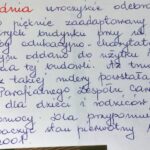 dnia uroczyście odebra
pięknie zaadaptowany
rych budynku przy
by edukacyjno - charytat
oddano do użytku
ta tej budowli. Aż
takiej rudery powstała
Parafialnego Zespołu Cari
dla dzieci i rodziców
mocy. Dla przypom
baczyć stan pierwotny
2001